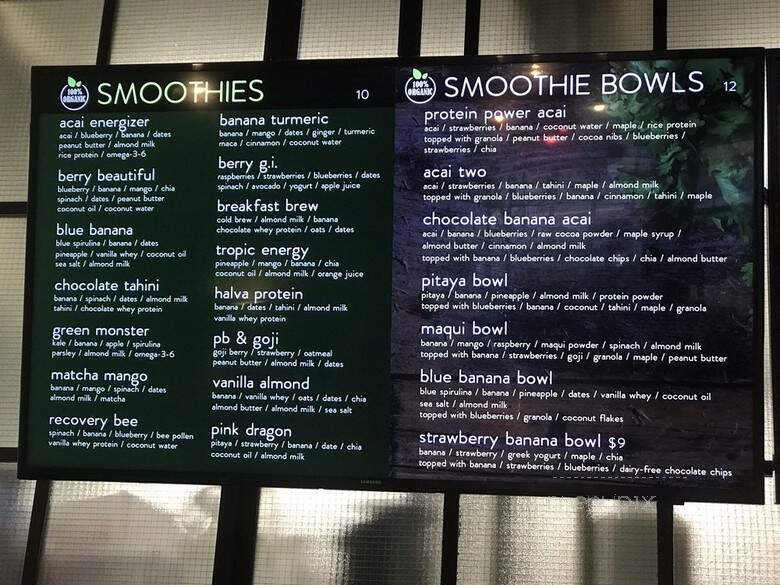 100% ORGANIC
SMOOTHIES 10
acai energizer
acai / blueberry / banana / dates
peanut butter / almond milk
rice protein / omega-3-6
berry beautiful
blueberry / banana / mango / chia
spinach / dates / peanut butter
coconut oil / coconut water
blue banana
blue spirulina / banana / dates
pineapple / vanilla whey / coconut oil
sea salt / almond milk
chocolate tahini
banana / spinach / dates / almond milk
tahini / chocolate whey protein
green monster
kale / banana / apple / spirulina
parsley / almond milk / omega-3-6
matcha mango
banana / mango / spinach / dates
almond milk / matcha
recovery bee
spinach / banana / blueberry / bee pollen
vanilla whey protein / coconut water
banana turmeric
banana / mango / dates / ginger / turmeric
maca / cinnamon / coconut water
berry g.i.
raspberries / strawberries / blueberries / dates
spinach / avocado / yogurt / apple juice
breakfast brew
cold brew / almond milk / banana
chocolate whey protein / oats / dates
tropic energy
pineapple / mango / banana / chia
coconut oil / almond milk / orange juice
halva protein
banana / dates / tahini / almond milk
vanilla whey protein
pb & goji
goji berry / strawberry / oatmeal
peanut butter / almond milk / dates
vanilla almond
banana / vanilla whey / oats / dates / chia
almond butter / almond milk / sea salt
pink dragon
pitaya / strawberry / banana / date / chia
coconut oil / almond milk
100% ORGANIC
SMOOTHIE BOWLS 12
protein power acai
acai / strawberries / banana / coconut water / maple / rice protein
topped with granola / peanut butter / cocoa nibs / blueberries /
strawberries / chia
acai two
acai / strawberries / banana / tahini / maple / almond milk
topped with granola / blueberries / banana / cinnamon / tahini / maple
chocolate banana acai
acai / banana / blueberries / raw cocoa powder / maple syrup /
almond butter / cinnamon / almond milk
topped with banana / blueberries / chocolate chips / chia / almond butter
pitaya bowl
pitaya / banana / pineapple / almond milk / protein powder
topped with blueberries / banana / coconut / tahini / maple / granola
maqui bowl
banana / mango / raspberry / maqui powder / spinach / almond milk
topped with banana / strawberries / goji / granola / maple / peanut butter
blue banana bowl
blue spirulina / banana / pineapple / dates / vanilla whey / coconut oil
sea salt / almond milk
topped with blueberries / granola / coconut flakes
strawberry banana bowl $9
banana / strawberry / greek yogurt / maple / chia
topped with banana / strawberries / blueberries / dairy-free chocolate chips
SAMSUNG